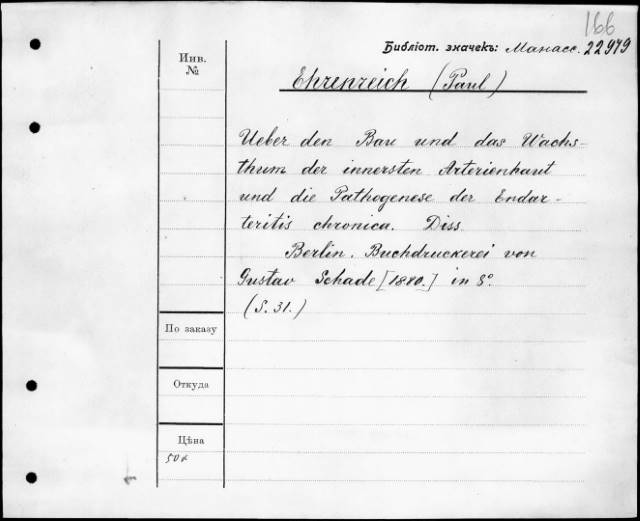 166
Библіот. значекъ: Манасс. 22979
Инв.
№
Ehrenreich (Paul)
Ueber den Bau und das Wachs-
thum der innersten Arterienhaut
und die Pathogenese der Endar-
teritis chronica. Diss.
Berlin. Buchdruckerei von
Gustav Schade [1880.] in 8°.
(S. 31.)
По заказу
Откуда
Цѣна
50к